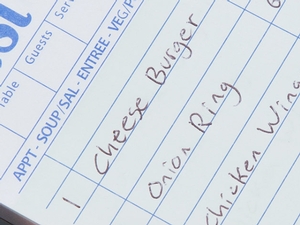 Table
Guests
APPT - SOUP/SAL - ENTREE - VEG/P
1 Cheese Burger
Onion Ring
Chicken Wing